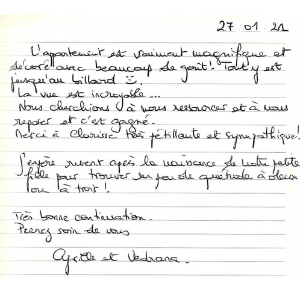 27 01 21
L'appartement est vraiment magnifique et
décoré avec beaucoup de goût ! Tout y est
jusqu'au billard
La vue est incroyable...
Nous cherchions à nous ressourcer et à nous
reposer et c'est gagné.
Merci à Clarisse très pétillante et sympathique !
J'espère revenir après la naissance de notre petite
fille pour trouver un peu de quiétude à deux
ou à trois !
Très bonne continuation.
Prenez soin de vous
et